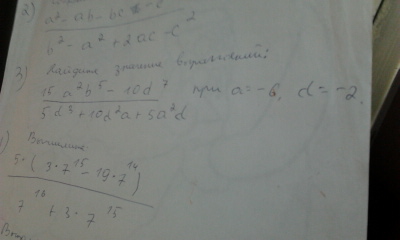 2)
a² - ab - bc - c²
b² - a² + 2ac - c²
3) Найдите значение выражений:
15 a²b⁵ - 10d⁷ при a = -6, d = -2.
5d³ + 10d²a + 5a²d
) Вычислите
5·(3·7¹⁵ - 19·7¹⁴)
7¹⁶ + 3·7¹⁵